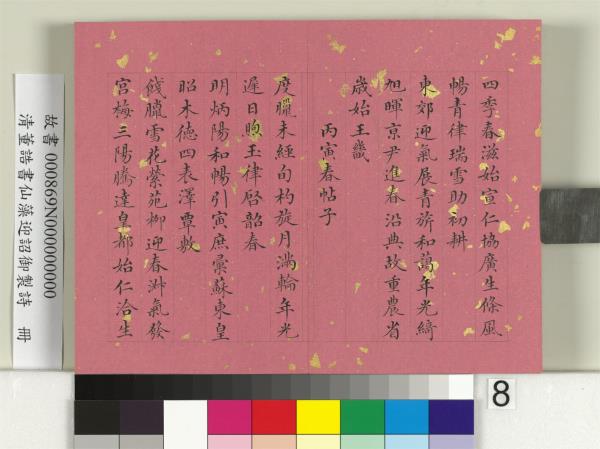 四季春滋始宣仁協廣生條風
暢青律瑞雪助初耕
東郊迎氣展青旂和萬年光綺
旭暉京尹進春沿典故重農省
歲始王畿
丙寅春帖子
度臘未經旬杓旋月滿輪年光
遲日煦玉律啓韶春
明炳陽和暢引寅庶彙蘇東皇
昭木德四表澤覃敷
餞臘雪花縈苑柳迎春淋氣發
宮梅三陽騰達皇都始仁洽生
故書 000869N000000000
清董誥書仙藻迎韶御製詩 冊
8